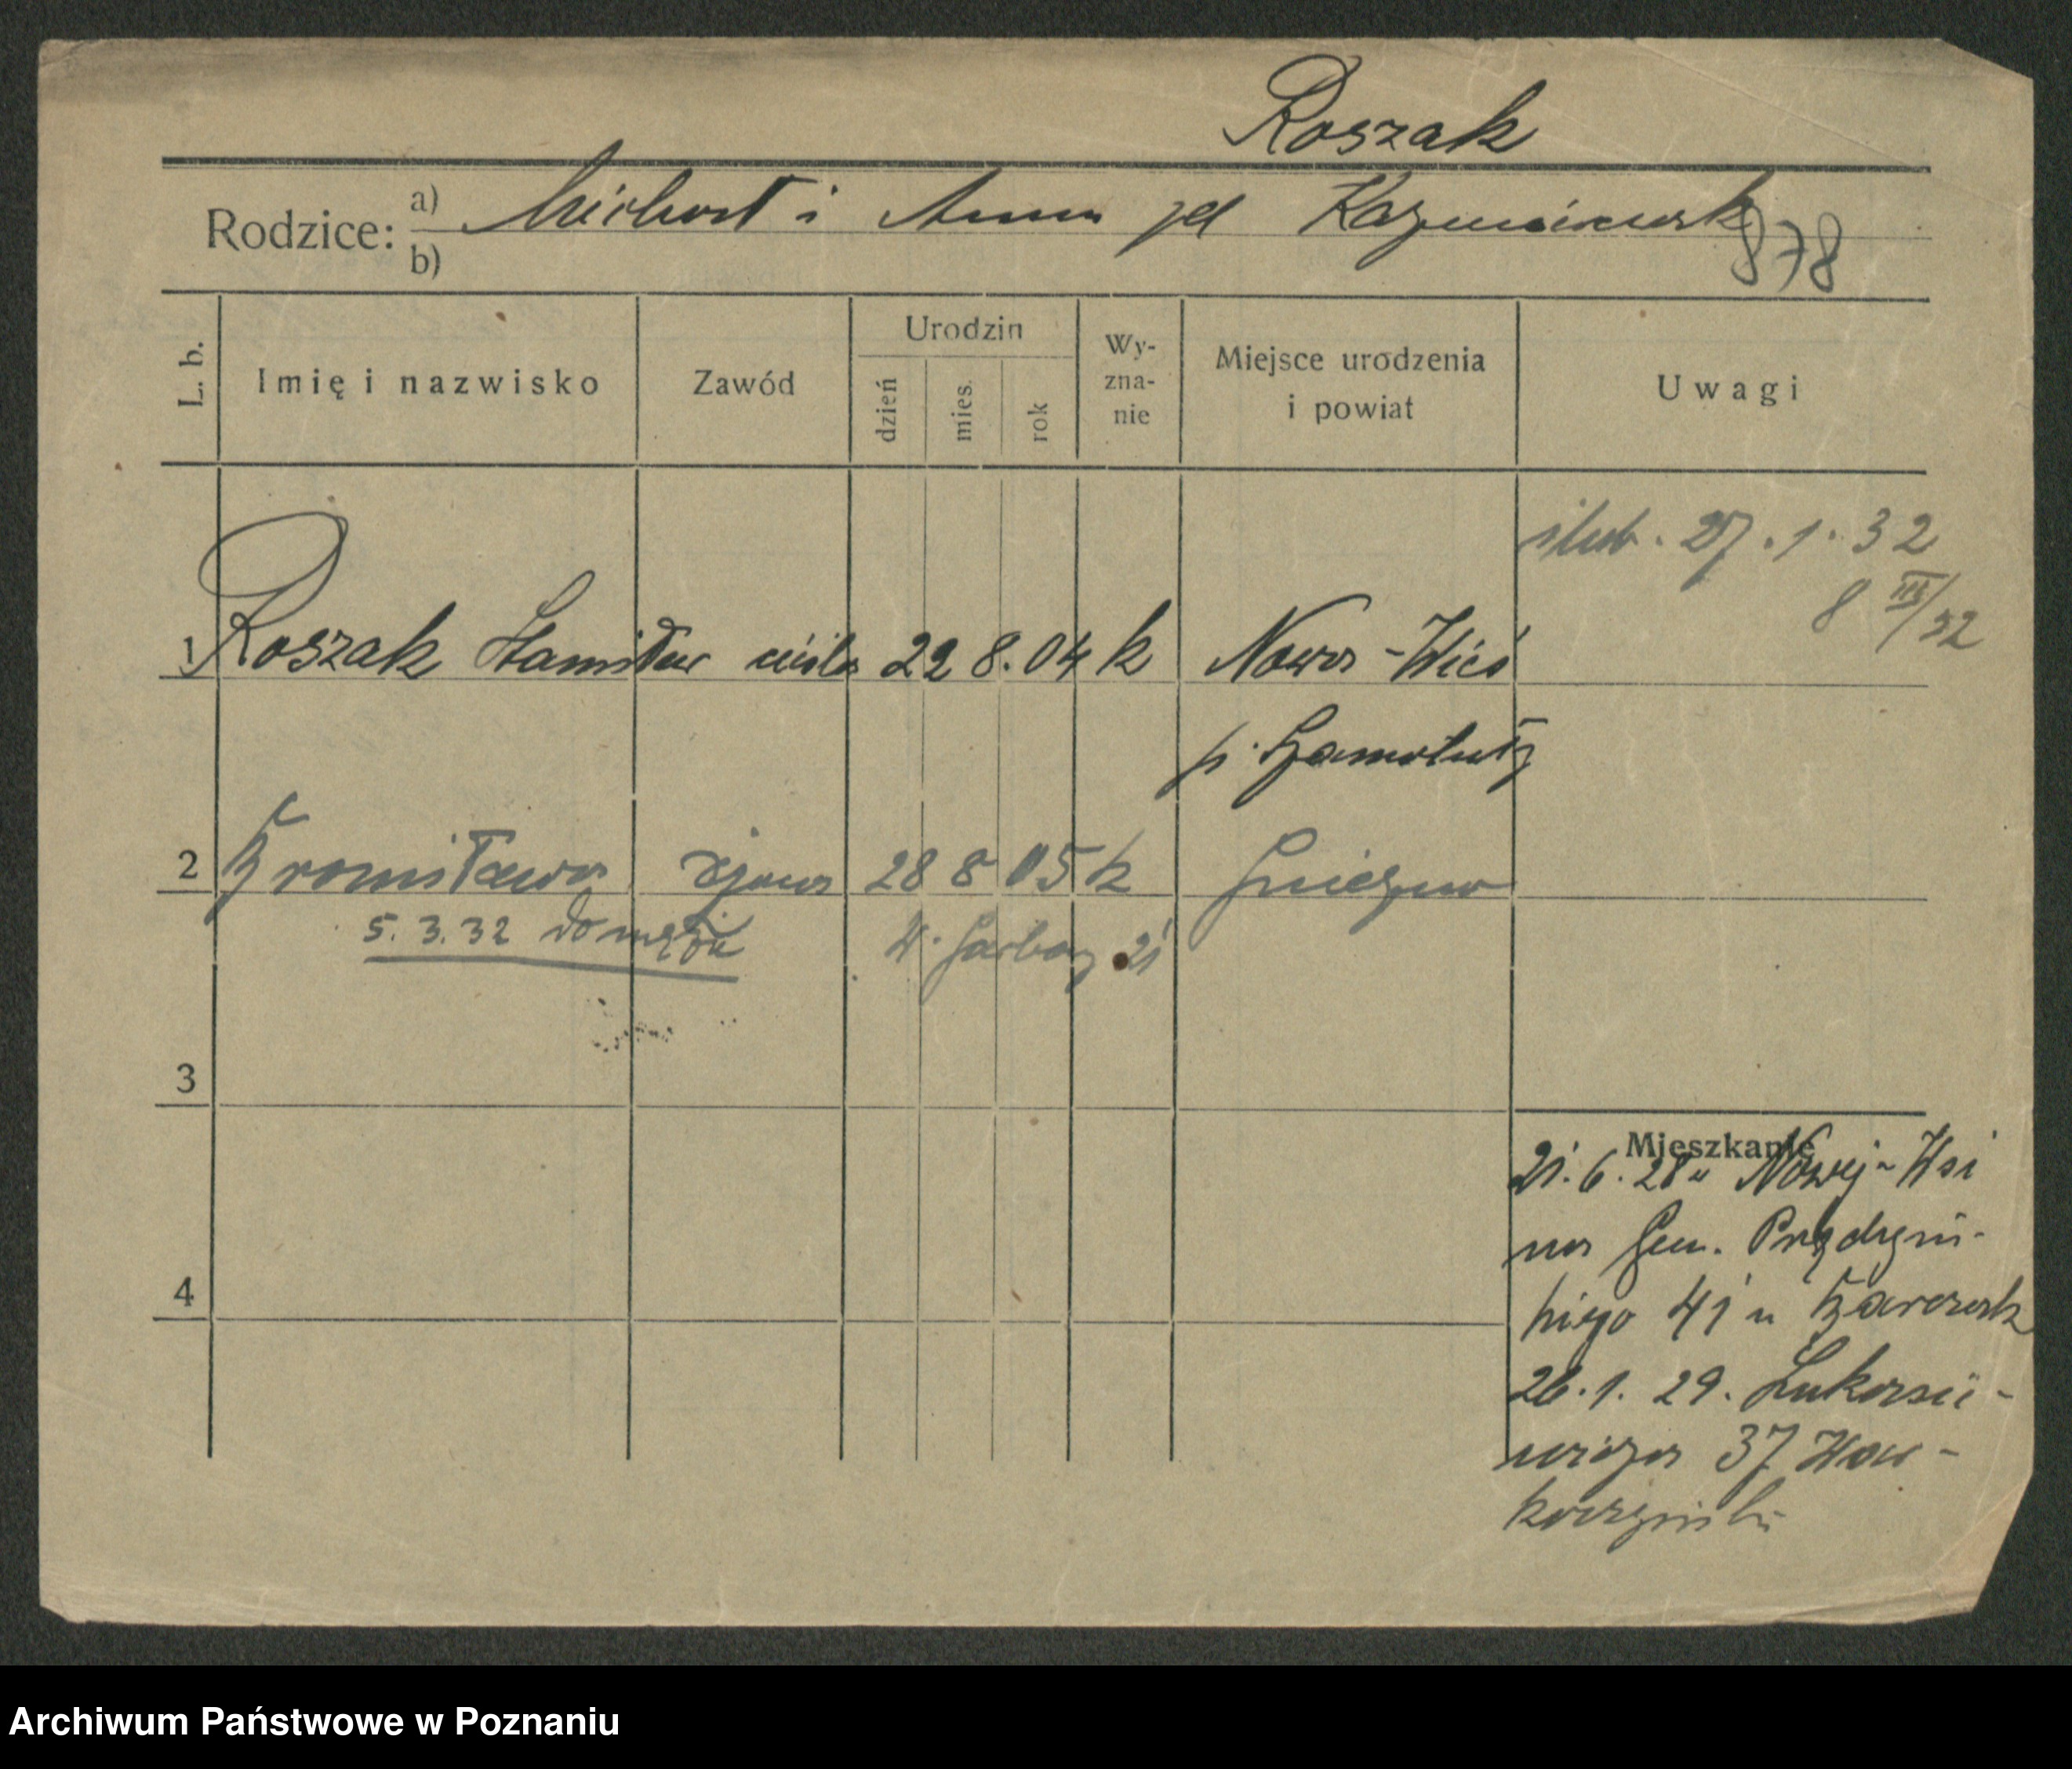 Roszak
Rodzice: a) Michał i Anna zd Kaźmierczak
b)
878
L. b. Imię i nazwisko Zawód Urodzin dzień mies. rok Wy-zna-nie Miejsce urodzenia i powiat Uwagi
ślub. 27.1.32
8 III/32
1 Roszak Stanisław cieśla 22 8. 04 k Nowa-Wieś
p. Szamotuły
2 Bronisława żona 28 8 05 k Gniezno
5. 3. 32 do męża W. Garbary 21
3
Mieszkanie
21. 6. 28 z Nowej-Wsi
na Gen. Prądzyń-
skiego 41 u
4
26. 1. 29. Łukasze-
wicza 37